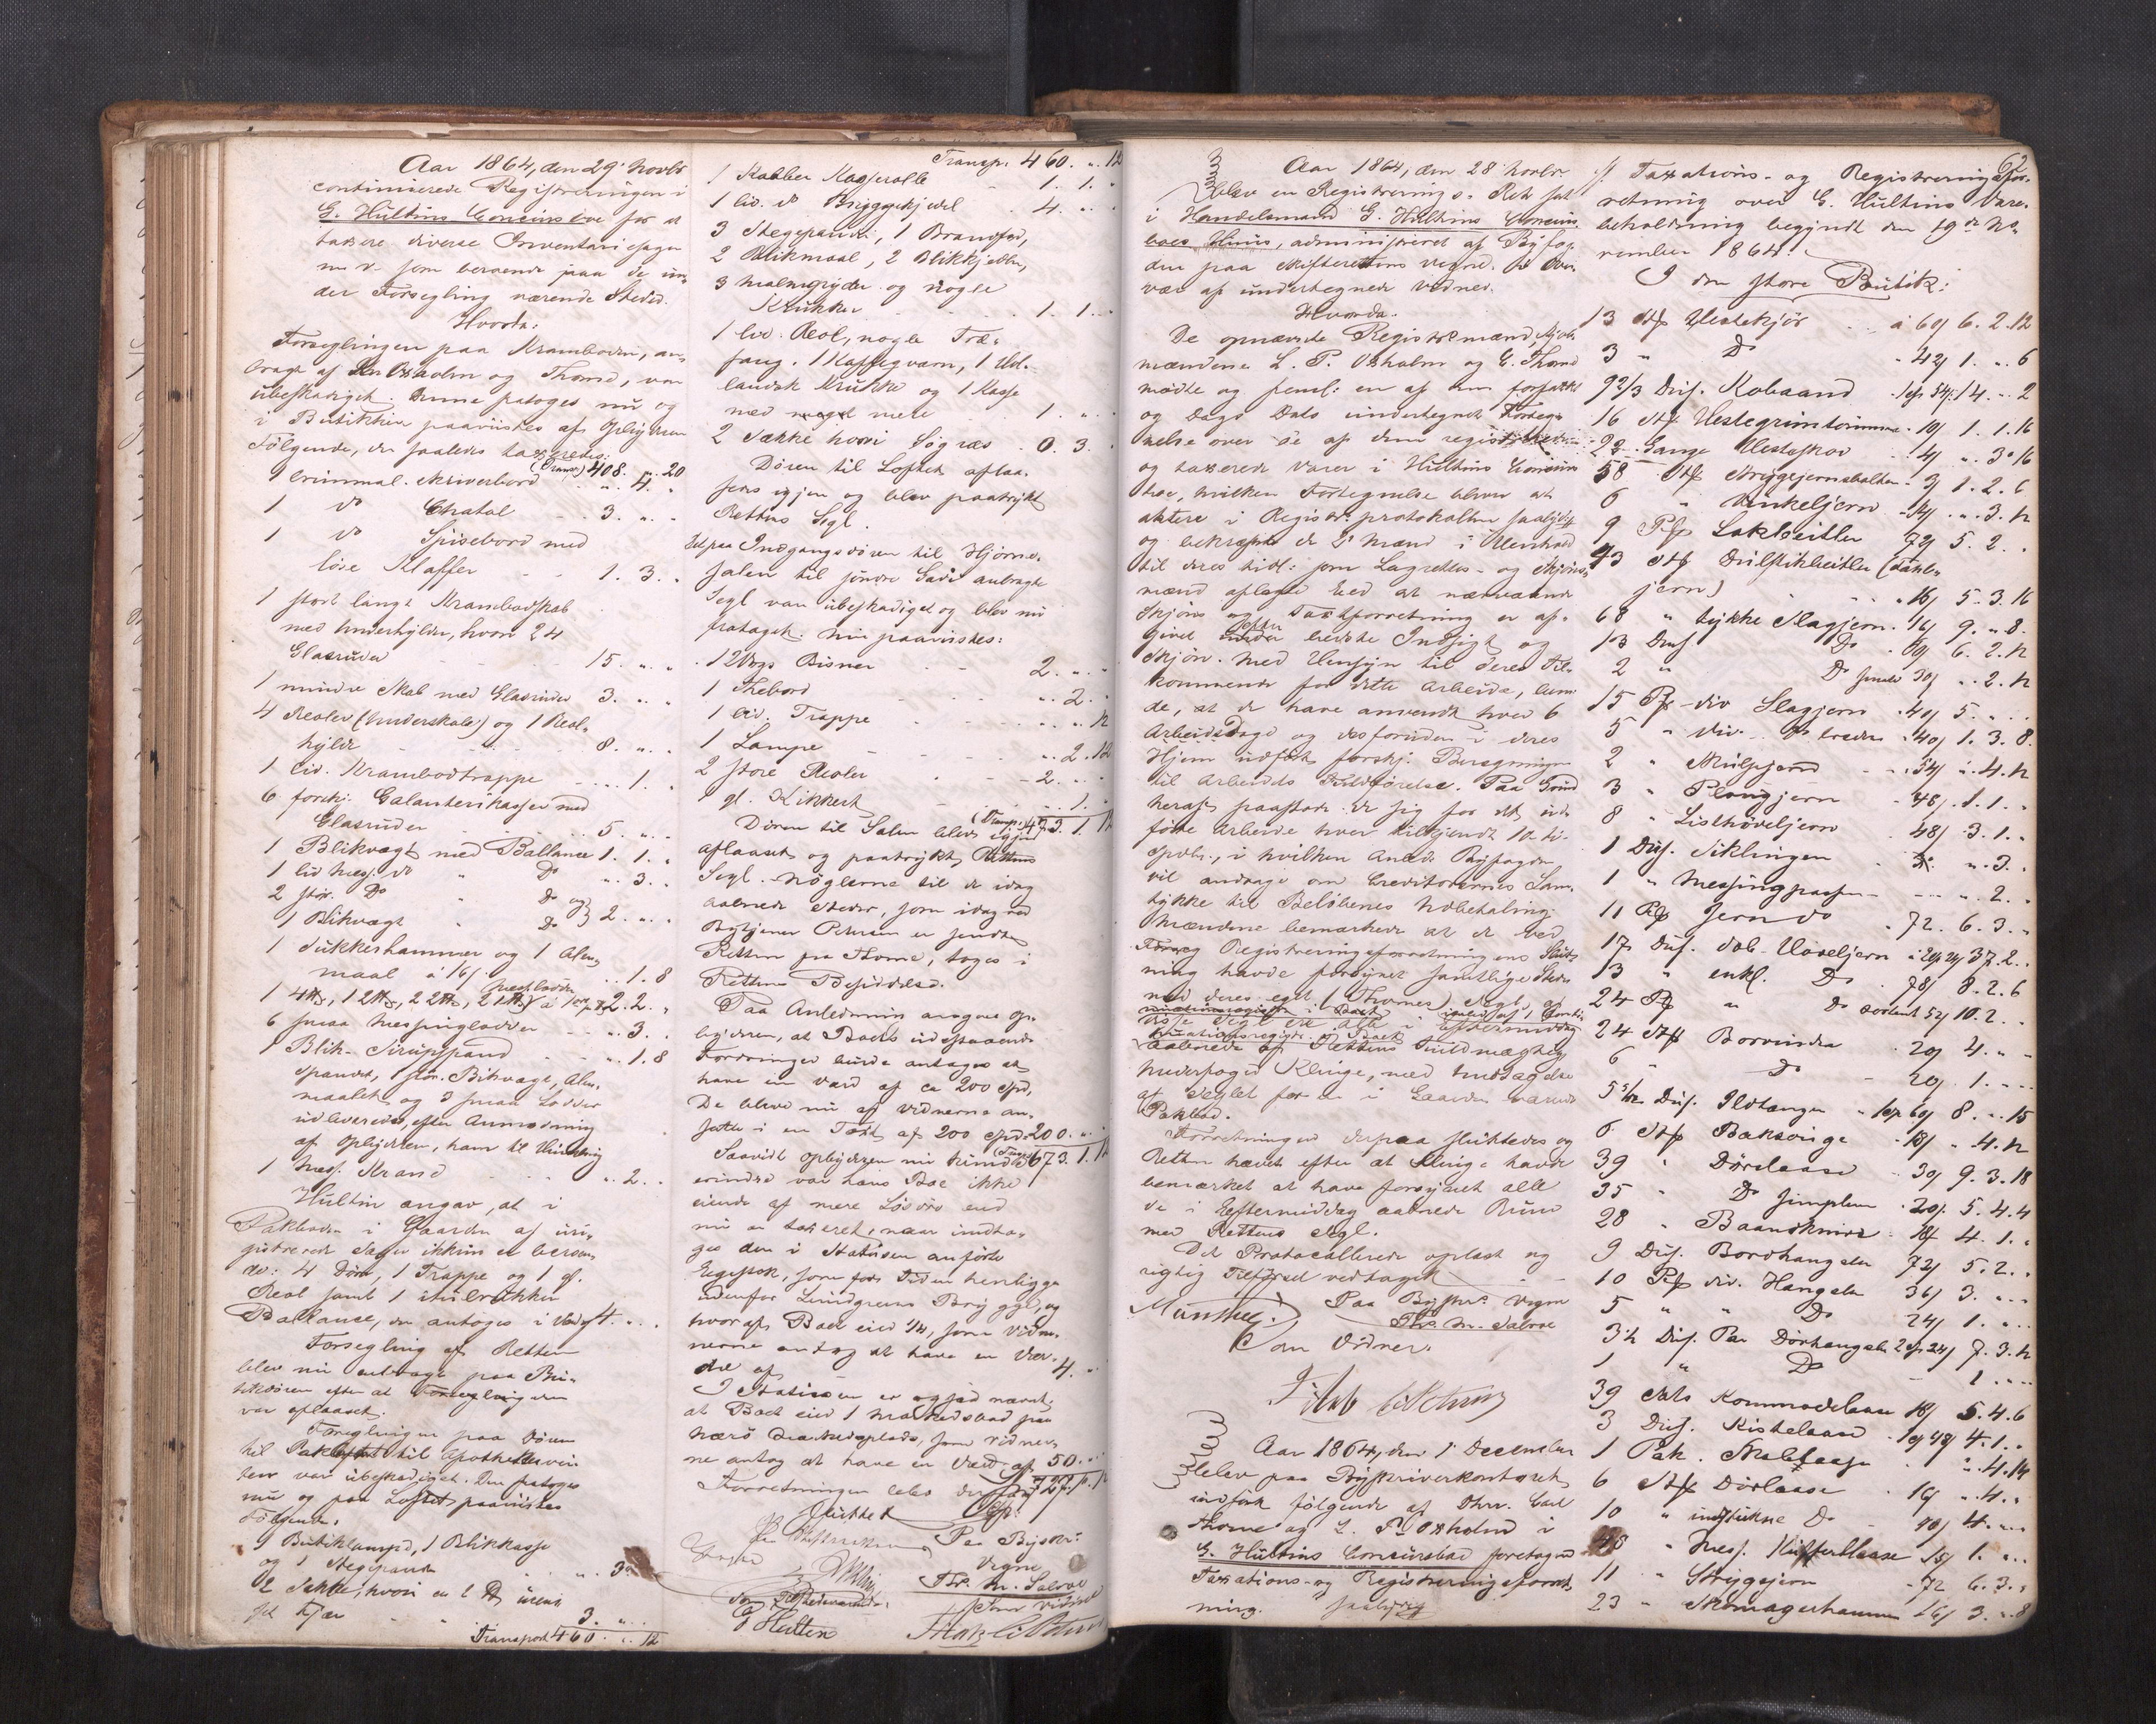 Aar 1864, den 29' Novbr
continuerede Registreringen i
G. Hultins Concursboe for at
taxere diverse Inventariesager
m v. som beroende paa de un-
der Forsegling værende Steder.
Hvorda:
Forseglingen paa Kramboden, an-
bragt af Oxholm og Thome, var
ubeskadiget. Denne patoges nu og
i Butikken paaviistes af Opbyderen
Følgende, der saaledes taxeredes:
(Transp:) 408. „. 20
1 Skriverbord „. 4. „
1 do Chatol 3. „. „
1 do Spisebord med
løse Klaffer 1. 3. „
1 stort langt Krambodskab
med Underhylder, hvori 24
Glasruder 15. „. „
1 mindre Skab med Glasruder 3. „. „
4 Reoler (Underskabe) og 1 Reol-
hylde 8. „. „
1 lid. Krambodtrappe „. 1. „
6 forskj. Galanterikasser med
Glasruder 5. „. „
1 Blikvægt med Ballance 1. 1. „
1 lid Mess. do „ Do „. 3. „
2 stør. Do Do og
1 Blikvægt „ Do } 2. „. „
1 Sukkerhammer og 1 Alen-
maal à 16 „. 1. 8
6 smaa Messinglodder „. 3. „
1 Blik- Sirupspand „. 1. 8
Spandet, stør. Bikvægt, Alen-
maalet og 3 smaa Lodder
udleveredes, efter Anmodning
af Opbyderen, ham til
1 Mess. Krand „. 2. „
Hultin angav, at i
Pakboden i Gaarden af uri-
gistrerede Sager ikkun er beroen-
de: 4 Døre, 1 Trappe og 1 gl.
Reol samt 1
Ballance, der antoges i Værd 4. „. „
Forsegling af Retten
blev nu anbragt paa Bu-
tikdøren efter at
var aflaaset.
Forseglingen paa Døren
til til Apothekerven-
ten var ubeskadiget. Den patoges
nu og paa Loftet paaviistes
Følgende:
1 Butiklampe, 1 Blikkasse
og 1 Stegepande „. 3. „
2 Sække, hvori en
Fjær 3. „. „
Transport 460. „. 12
Transp: 460. „. 12
1 Kobber Kasserolle 1. 1. „
1 lid. do Bryggekjedel 4. „. „
3 Stegepander, 1 Brandfad,
2 Blikmaal, 2 Blikkjedler,
3 Malmgryder og nogle
Krukker 1. 1. „
1 lid. Reol, nogle Træ-
fang. 1 Kaffeqværn, 1 Ud-
landsk Krukke og 1 Kasse
med noget mere 1. „. „
2 Sække hvori Søgræs 0. 3. „
Døren til Loftet aflaa-
sedes igjen og blev paatrykt
Rettens Segl.
Det paa Indgangsdøren til Hjørne-
salen til søndre Gade anbragte
Segl var ubeskadiget og blev nu
frataget. Nu paaviistes:
1 2Vogs Bisner 2. „. „
1 Thebord „. 2. „
1 lid. Trappe „. „. 12
1 Lampe „. 2. 12
2 store Reoler 2. „. „
1 gl. Kikkert „. 1. „
(Transp:) 473. 1. 12
Døren til Salen blev igjen
aflaaset og paatrykt Rettens
Segl. Nøglerne til de idag
aabnede Steder, som idag ved
Bytjener Petersen er sendt
Retten fra Thome, toges i
Rettens Besiddelse.
Paa Anledning angav Op-
byderen, at Boets udestaaende
Fordringer burde antages at
have en Værd af ca 200 Spd,
De bleve nu af Vidnerne an-
satte i en Taxt af 200 Spd 200. „. „
(Transp:) 673. 1. 12
Saavidt Opbyderen nu kunde
erindre var hans Boe ikke
eiende af mere Løsøre end
nu er taxeret, naar undta-
ges den i Statusen anførte
Egestok, som for Tiden henligger
udenfor Lundgreens Brygge, og
hvoraf Boet eier 1/4, som Vidn-
nerne antog at have en Vær-
die af 4. „. „
I Statusen er ogsaa nævnt,
at Boet eier 1 Markedsbod paa
Nærø Markedsplads, som Vidner-
ne antog at have en Værd af 50. „. „
727. 1. 12
Forretningen blev derpaa
sluttet
Paa Byskr:
Vegne
Thr. M. Salvoe
som Vidner
G Hultin
Aar 1864, den 28' Novbr
blev en Registrerings- Ret sat
i Handelsmand G. Hultins Concurs-
boes Huus, administreret af Byfog-
den paa Skifterettens Vegne. I Over-
vær af undertegnede Vidner.
Hvorda.
De opnævnte Registr.mænd, Skjøns-
mændene L. P. Oxholm og C. Thome
mødte og freml: en af dem forfattet
og Dags Dato undertegnet Forteg-
nelse over de af dem registrerede
og taxerede Varer i Hultins Concurs-
boe, hvilken Fortegnelse bliver at
aktere i Registr: protokollen saalydende
og bekræfter de 2' Mænd i Henhold
til deres tidl: som Lagrettes- og Skjøns-
mænd aflagte Eed at nærværende
Skjøns og Taxtforretning er af-
givet efter bedste Indsigt og
Skjøn. Med Hensyn til deres Til-
kommende for dette Arbeide, bem-
de, at de have anvendt hver 6
ArbeidsDage og desforuden i deres
Hjem udført forskj. Beregninger
til Arbeidets Fuldførelse. Paa Grund
heraf paastode de sig for det ud-
førte Arbeide hver tilkjendt 10 ti-
Spdlr., i hvilken Anled: Byfogden
vil andrage om Creditorernes Sam-
tykke til Beløbenes Udbetaling.
Mændene bemærkede at de ved
Registreringsforretningens Slut-
ning havde forsynet samtlige Steder
med deres eget (Thomes) Segl, af
aabnede af Rettens Fuldmægtig
Underfoged Klinge, med Undtagelse
af Seglet for den i Gaarden værende
Pakbod.
Forretningen derpaa sluttedes og
Retten hævet efter at Klinge havde
bemærket at have forsynet alle
de i Eftermiddag aabnede Rum
med Rettens Segl.
Det Protocollerede oplæst og
rigtig Tilførsel vedtaget
Munthe. Paa Byskr: Vegne
Thr. M. Salvoe
Som Vidner.
Aar 1864, den 1' December
blev paa Byskriverkontoret
indført følgende af Dhrr. Carl
Thome og L. P. Oxholm i
G. Hultins Concursboe foretagne
Taxations- og Registreringsforret-
ning. saalyd:
62
Taxations- og Registreringsfor-
retning over G. Hultins Vare-
beholdning begyndt den 19de No-
vember 1864.
I den store Butik:
13 Stk Hestekjør à 60 6. 2. 12
3 „ Do „ 42 1. „. 6
9 2/3 Dus. Kobaand 14. „. 2
16 Stk Hestegrimtømme 10 1. 1. 16
22 Gange Hestesko 4 „. 3. 16
58 Stk Strygejernsbolter 3 1. 2. 6
6 „ Vinkeljern 14 „. 3. 12
9 Pk Lokbeitler 72 5. 2. „
43 Stk Dulstikbeitler (
jern) „ 16 5. 3. 16
68 „ tykke Slagjern 16 9. „. 8
13 Dus Do 60 6. 2. 12
2 „ Do smale 30 „. 2. 12
15 Pk div Slagjern 40 5. „. „
5 „ div. Do bredere 40 1. 3. 8
2 „ „ 54 „. 4. 12
3 „ Plougjern 48 1. 1. „
8 „ Listhøveljern 48 3. 1. „
1 Dus. Siklinger „. 3. „
1 „ Messingpasser „. 2. „
11 Pk Jern do 72. 6. 3. „
17 Dus. dob. Høveljern 37. 2. „
13 „ enkl. Do 78 8. 2. 6
24 Pk „ Do 52 10. 2. „
24 Stk Borvinder 20 4. „. „
6 „ Do 20 1. „. „
5 5/12 Dus. Ildtænger 60 8. „. 15
6 Stk Baksvinge 18 „. 4. 12
39 „ Dørelaase 30 9. 3. 18
35 „ Do simplere 20 5. 4. 4
28 „ Baandknive 18 4. 1. „
9 Dus. Bordhængsler 72 5. 2. „
10 Pk div. Hængsler 36 3. „. „
5 „ „ Do 24 1. „. „
3 1/2 Dus. Par Dørhængsler 24 7. 3. 12
1 „ Do 1 „. „
39 Sæts Kommodelaase 18 5. 4. 6
3 Dus. Kistelaase 48 4. 1. „
1 Pak. „. 4. 14
6 Stk Dørlaase 16 „. 4. „
10 „ indstukne Do 48 4. „. „
„ Mess. Kuffertlaase 15 1. „. „
11 „ Strygejern 72 6. 3. „
23 „ Skomagerhammere 16 3. „. 8